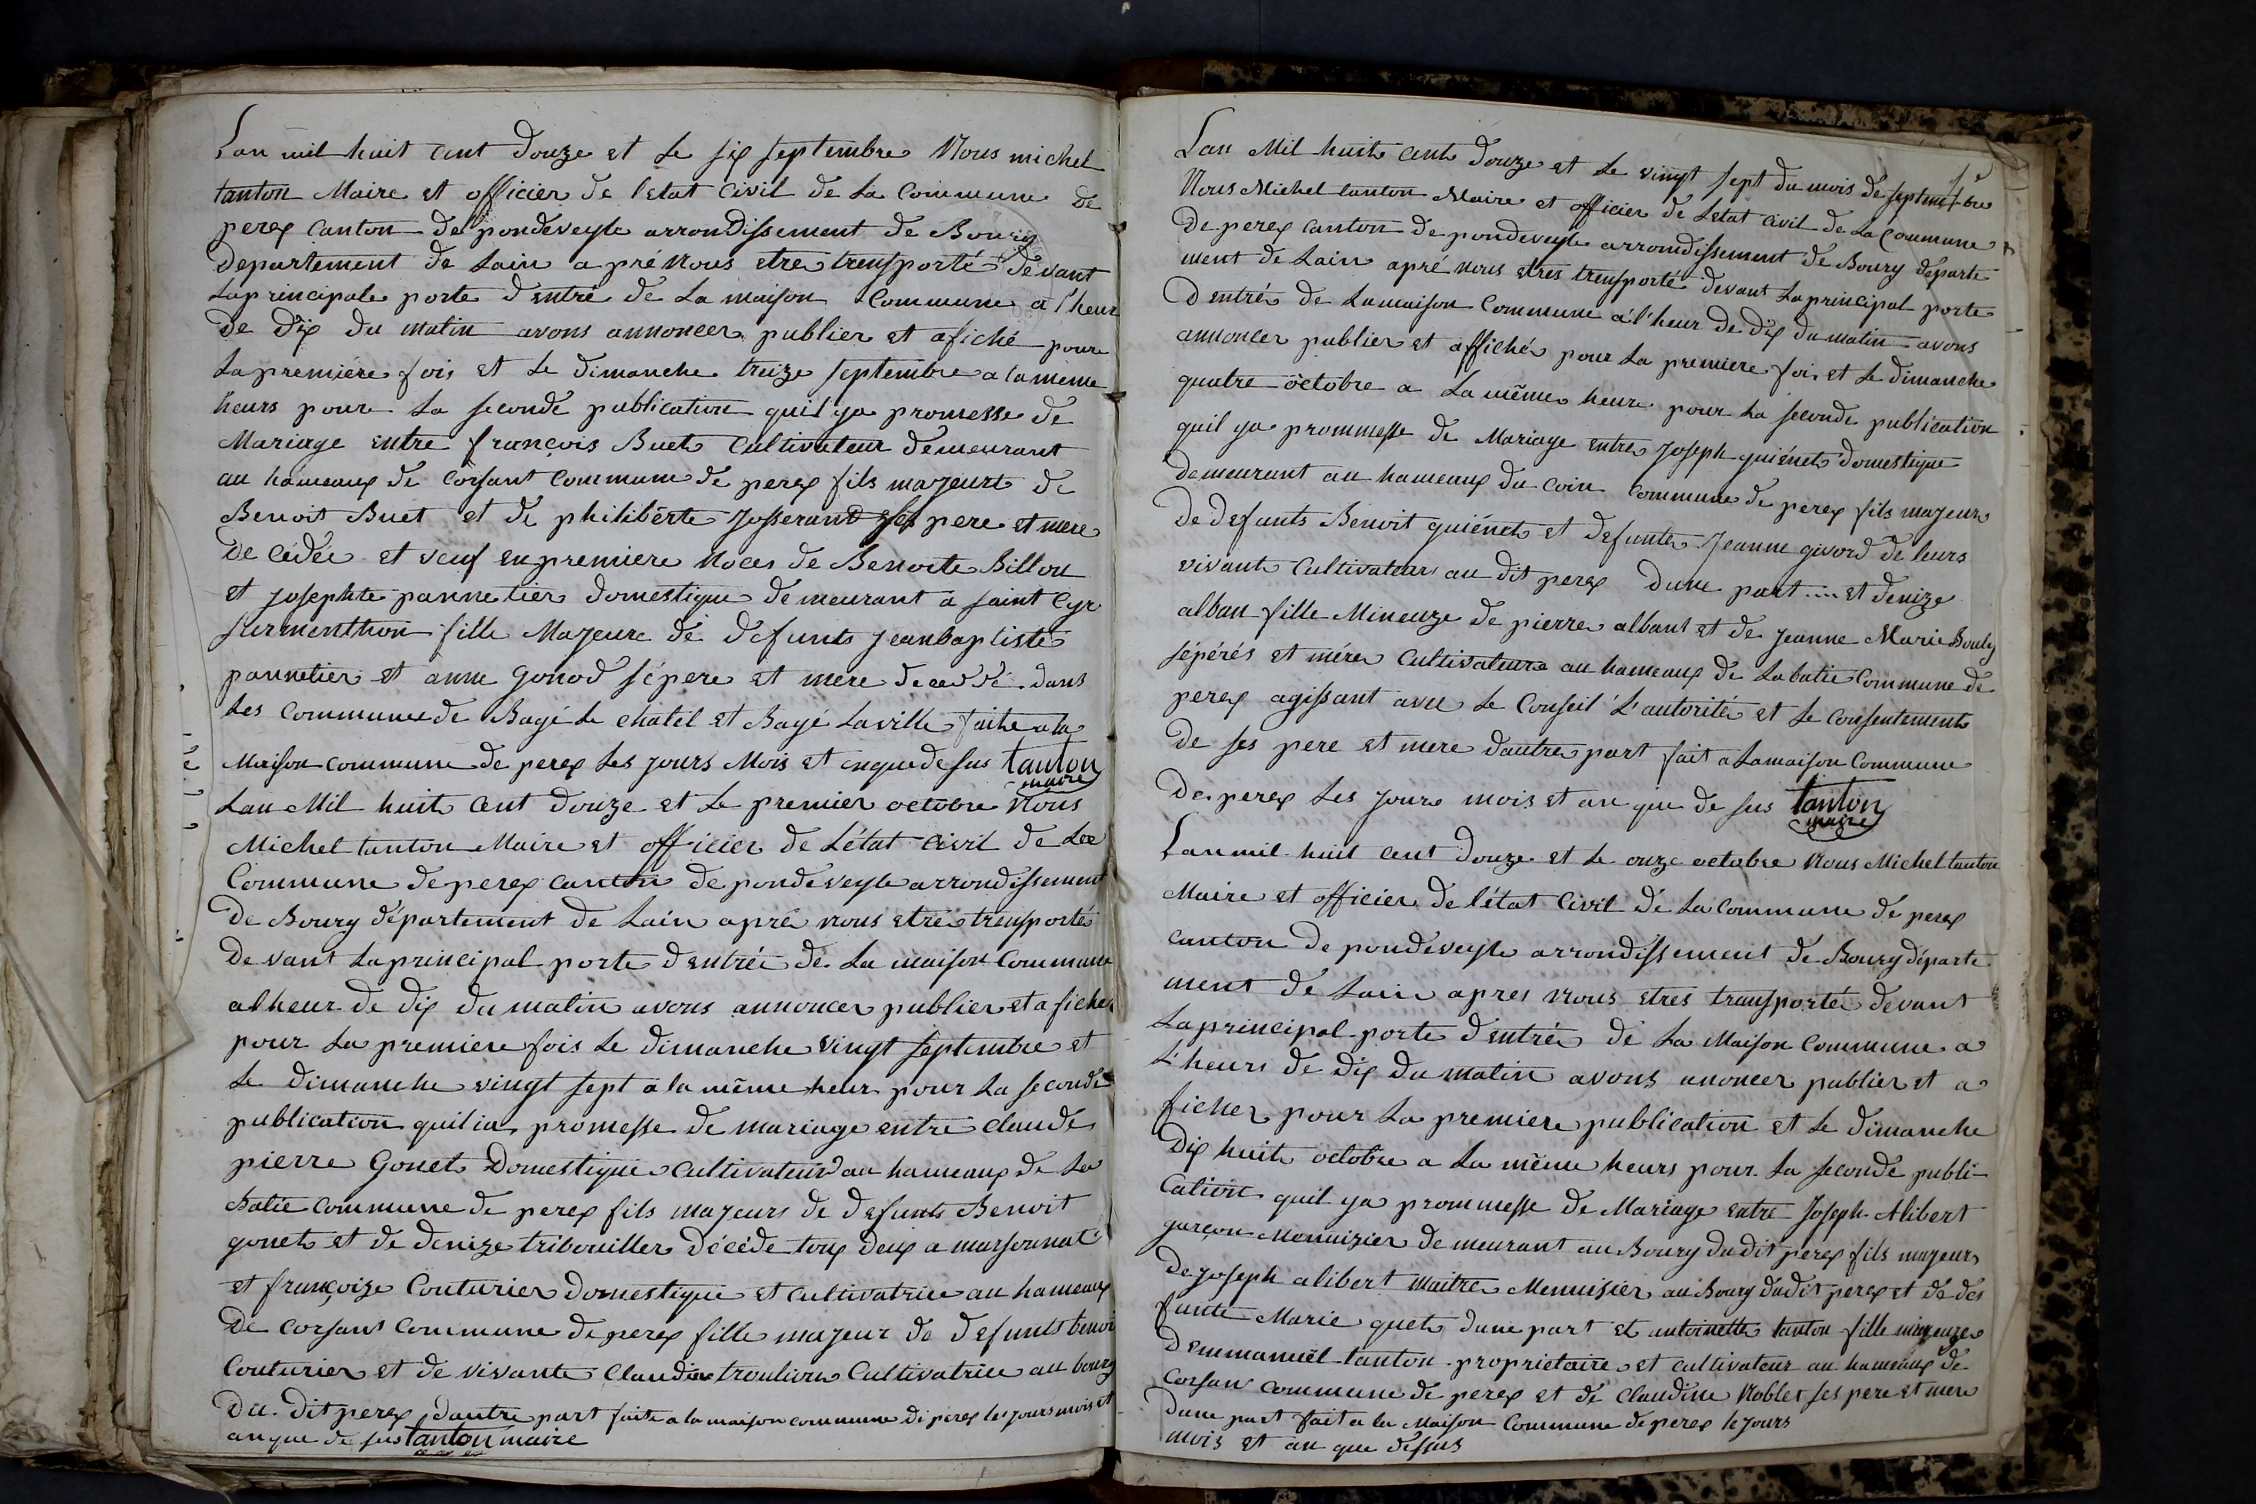 Lan mil huit cent douze et le six septembre Nous michel
tanton Maire et officier de letat civil de la Commune de
perex canton de pondeveyle arrondissement de Bourg
Departement de Lain a pré Nous etre trensporté devant
La principale porte d entré de La maison Commune a l'heur
de dix du matin avons annoncer publier et afiché pour
La premiére fois et le dimanche treize septembre a la même
heurs pour la seconde publication quil ya promesse de
Mariage entre françois Buet Cultivateur demeurant
au hameaux de Corsant Commune de perex fils majeurs de
Benoit Buet et de philiberte Josserand ses pere et mere
de cédée et veuf en premiere Noces de Benoite Billon
et josephte pannetier domestique demeurant a saint Cyr
surmenthon fille Majeure de defunts jeanbaptiste
pannetier et anne Gonod sépere et mere decedé dans
Les Communes de Bagé le chatel et Bagé Laville faite a la
Maison commune de perex Les jours Mois et enquedesus tanton
maire
Lan Mil huit cent douze et le premier octobre Nous
Michel tanton Maire et officier de Létat Civil de La
Commune de perex canton de pondeveyle arrondissement
de Bourg département de Lain apré nous etre trensporté
devant La principal porte d entrée de La maison Commune
alheur de dix du matin avons annoncer publier et aficher
pour La premiere fois le dimanche vingt septembre et
Le dimanche vingt sept a la même heur pour la seconde
publication quilia promesse de mariage entre claude
pierre Gonet Domestique Cultivateur au hameaux de La
Batie commune de perex fils majeurs de defunts Benoit
gonet et de denize tribouiller décéde toux deux a marsonnat
et françoize Couturier domestique et Cultivatrice au hameaux
de corsant commune de perex fille majeur de defunts benoi
Couturier et de vivante Claudine troulion Cultivatrice au bourg
du dit perex dautre part faite a la maison commune de perex les jours mois et
anque de sus tanton maire
Lan Mil huit cent douze et le vingt sept du mois de septembre
Nous Michel tanton Maire et officier de Letat civil de La Commune
de perex canton de pondeveyle arrondissement de Bourg départe
ment de Lain apré nous etres trensporté devant La principal porte
d entrés de Lamaison Commune a l'heur de dix du matin avons
annoncer publier et affiché pour La premiere fois et le dimanche
quatre octobre a La même heur pour La seconde publication
quil ya prommesse de Mariage entre joseph guiénet domestique
demeurant au hameaux du coin Commune de perex fils majeur
de defunts Benoit guiénet et defunte Jeanne givord de leurs
vivant Cultivateur au dit perex Dune part .... et denize
alban fille Mineuze de pierre albant et de jeanne Marie Bouly
sépérés et mére Cultivateur au hameaux de Labatie Commune de
perex agissant avec Le Conseil L'autorité et le consentement
de ses pere et mere dautre part fait a Lamaison Commune
De perex Les Jours mois et an que de sus tanton
maire
Lan mil huit cent douze et le onze octobre Nous Michel tanton
Maire et officier de létat Civil de La commune de perex
canton de pondeveyle arrondissement de Bourg départe
ment de Lain apres nous etres transporté devant
La principal porte d entrée de La Maison Commune a
L'heurs de dix du matin avons anoncer publier et a
ficher pour La premiere publication et le dimanche
Dix huit octobre a La même heurs pour La seconde publi
Cation quil ya prommesse de Mariage entre Joseph Alibert
garçon Menuizier demeurant au Bourg dudit perex fils majeurs
de joseph alibert Maitre Menuisier au Bourg dudit perex et de dé
funte Marie guet dune part et antoinette tanton fille mineuze
D emmanuel tanton proprietaire et cultivateur au hameaux de
Corsan commune de perex et de Claudine Noblet ses pere et mere
dune part fait a La Maison Commune de perex le jours
mois et an que dessus